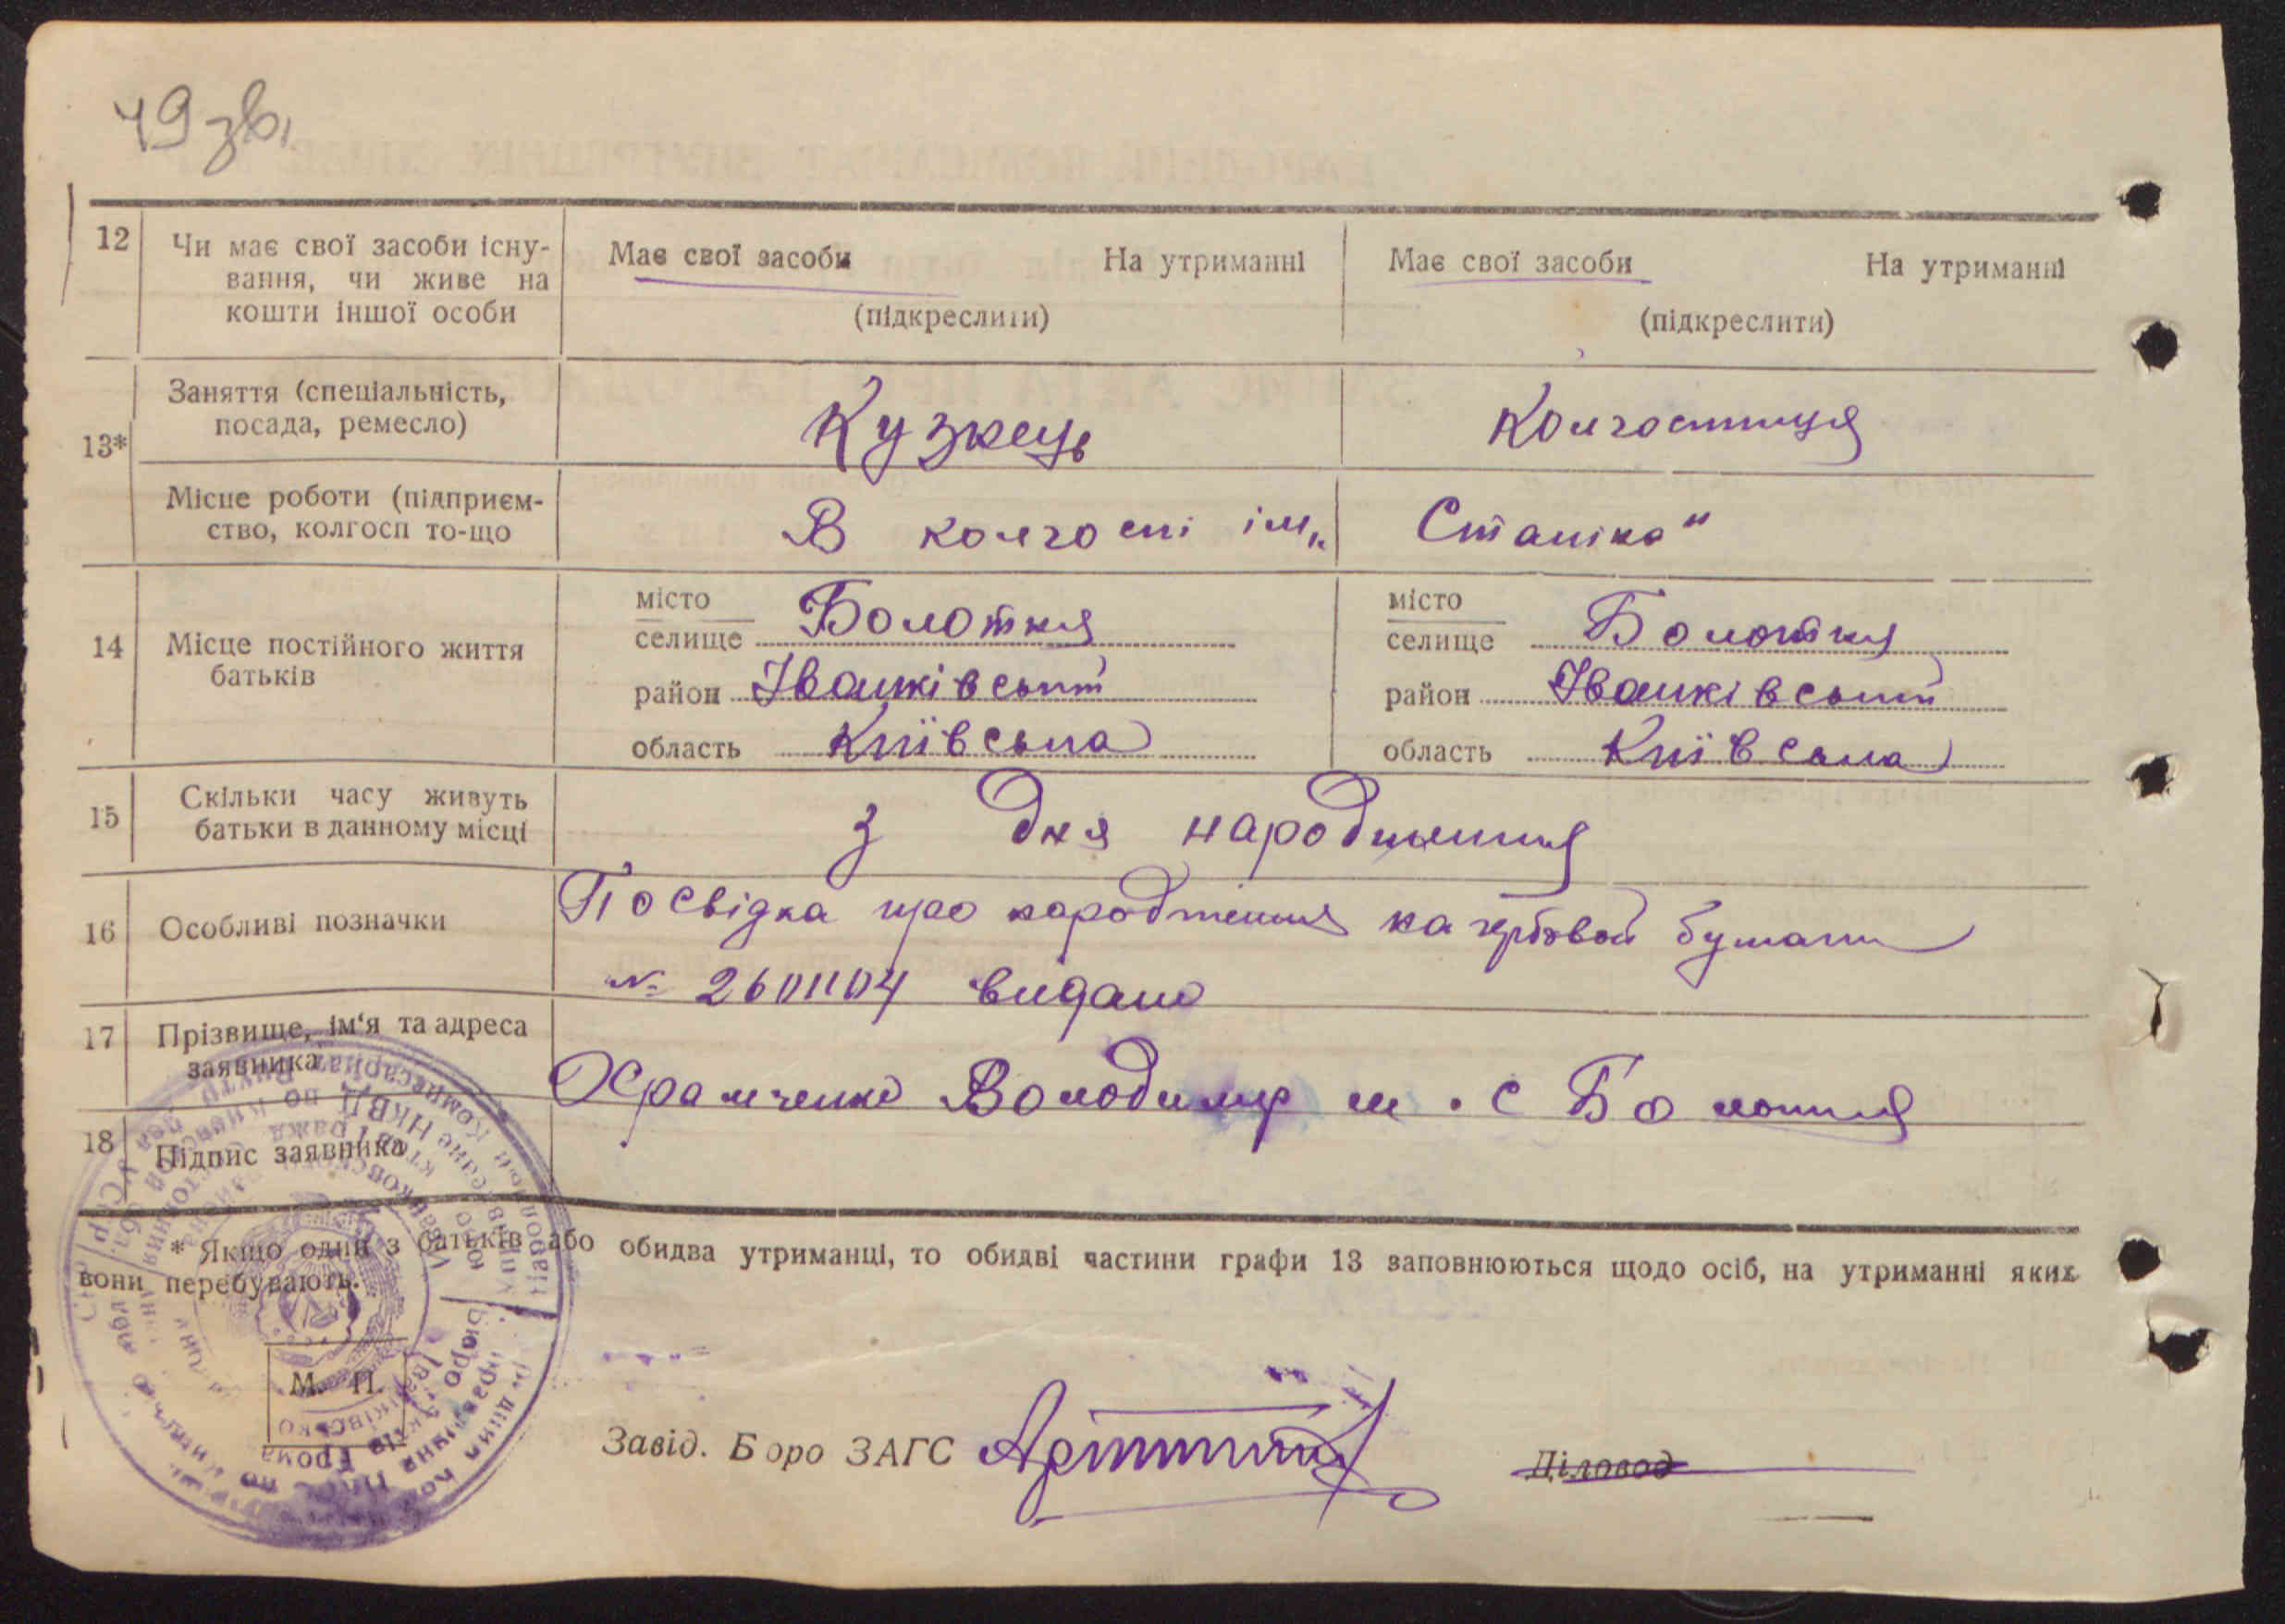 49 зв.
12 Чи має свої засоби існу- Має свої засоби На утриманні Має свої засоби На утриманні
вання, чи живе на
кошти іншої особи (підкреслити) (підкреслити)
Заняття (спеціальність, Кузнець Колгоспниця
13* посада, ремесло)
Місце роботи (підприєм- В колгоспі ім. „ Сталіна"
ство, колгосп то-що
місто місто
14 Місце постійного життя селище Болотня селище Болотня
батьків район Іванківський район Іванківський
область Київська область Київська
15 Скільки часу живуть з дня народження
батьки в данному місці
16 Особливі позначки Посвідка про народження на гербовой бумаги
№ 2601104 видано
17 Прізвище, ім'я та адреса
заявника Храмченко Володимир м. с Болотня
18 Підпис заявника
* Якщо один з батьків або обидва утриманці, то обидві частини графи 13 заповнюються щодо осіб, на утриманні яких
вони перебувають.
М. П.
Завід. Бюро ЗАГС Діловод